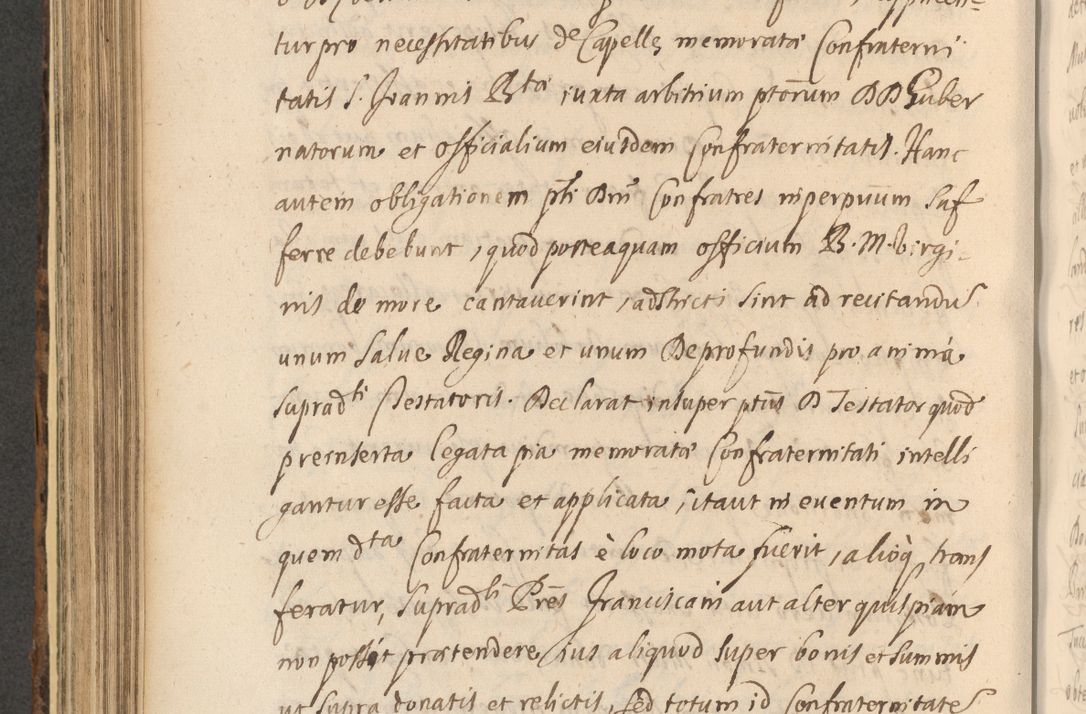 tur pro necessitatibus de Capelle memoratæ Confraterni
tatis S. Joannis Btæ iuxta arbitrium ptorum DD Guber
natorum et officialium eiusdem Confraternitatis. Hanc
autem obligationem pti Dni Confratres in perpuum suf
ferre debebunt, quod posteaquam officium B. M. Virgi-
nis de more cantaverint, adstricti sint ad recitandus
unum Salve Regina et unum De profundis pro anima
supradti Testatoris. Declarat insuper ptus D Testator quod
preinserta legata pia memoratæ Confraternitati intelli
gantur esse facta et applicata, itaut in eventum in
quem dta Confraternitas è loco mota fuerit, alioq trans
feratur, supradti Pres Franciscani aut alter quispiam
non possit prætendere ius aliquod super bonis et summis
ut supra donatis et relictis, sed totum id Confraternitates